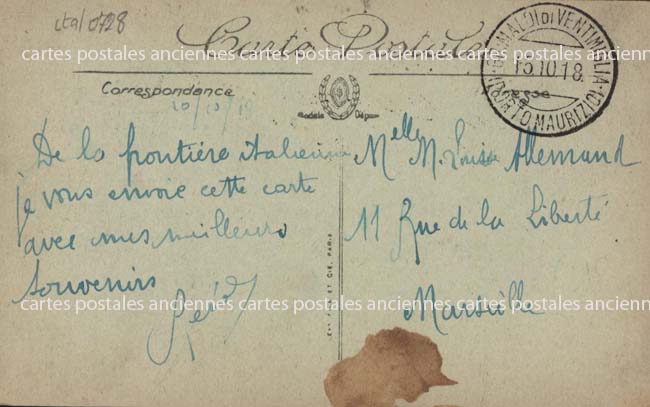 ital 0728
Carte Postale
cartes postales anciennes cartes postales anciennes cartes postales anciennes
Correspondance
Modèle Déposé
GRIMALDI DI VENTIMIGLIA
15.10.18
(PORTO MAURIZIO)
De la frontière italienne
je vous envoie cette carte
avec mes meilleurs
souvenirs
Melle M. Louise Allemand
11 Rue de la Liberté
Marseille
cartes postales anciennes cartes postales anciennes cartes postales anciennes
ET CIE, PARIS